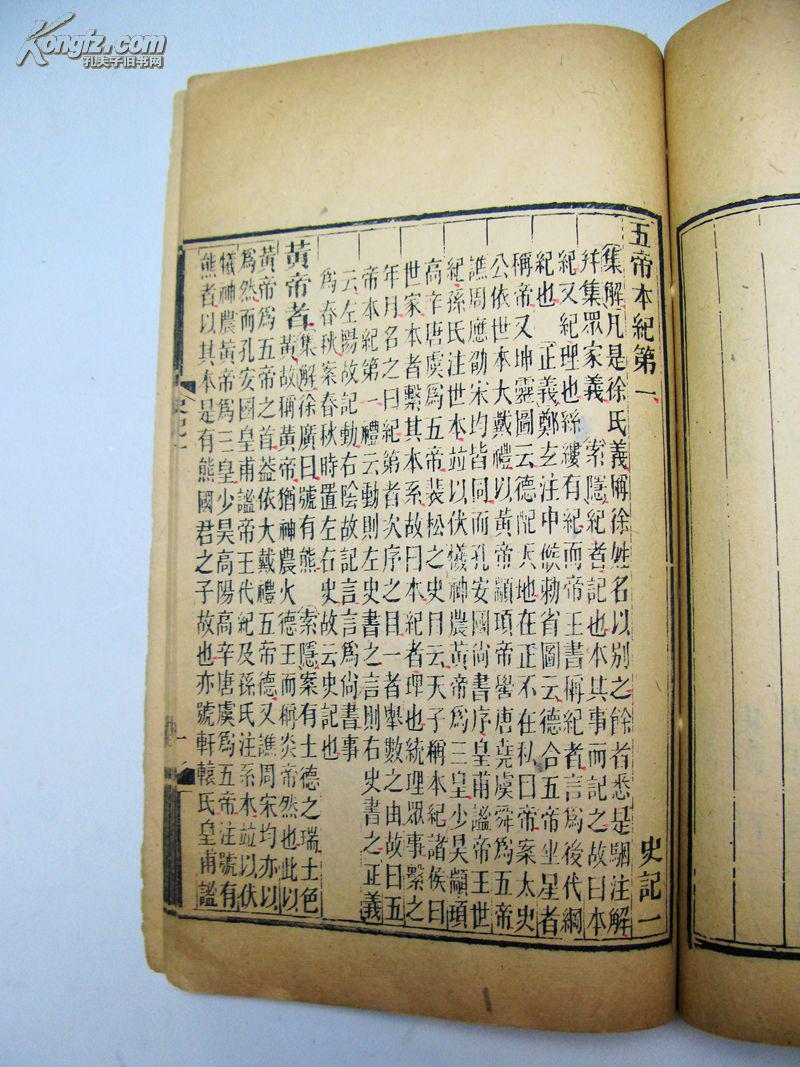 Kongfz.com
孔夫子旧书网
五帝本紀第一
史記一
集解凡是徐氏義稱徐姓名以別之餘者悉是駰注解
幷集眾家義 索隱紀者記也本其事而記之故曰本
紀又紀理也絲縷有紀而帝王書稱紀者言為後代綱
紀也 正義鄭玄注中候勅省圖云德合五帝坐星者
稱帝又坤靈圖云德配天地在正不在私曰帝案太史
公依世本大戴禮以黃帝顓頊帝嚳唐堯虞舜爲五帝
譙周應劭宋均皆同而孔安國尚書序皇甫謐帝王世
紀孫氏注世本竝以伏犧神農黃帝爲三皇少昊顓頊
高辛唐虞爲五帝裴松之史目云天子稱本紀諸侯曰
世家本者繫其本系故曰本紀者理也統理眾事繫之
年月名之曰紀第者次序之目一者舉數之由故曰五
帝本紀第一禮云動則左史書之言則右史書之正義
云左陽故記動右陰故記言言爲尚書事
爲春秋案春秋時置左右史故云史記也
黃帝者
集解徐廣曰號有熊 索隱案有土德之瑞土色
黃故稱黃帝猶神農火德王而稱炎帝然也此以
黃帝爲五帝之首葢依大戴禮五帝德又譙周宋均亦以
爲然而孔安國皇甫謐帝王代紀及孫氏注系本竝以伏
犧神農黃帝爲三皇少昊高陽高辛唐虞爲五帝注號有
熊者以其本是有熊國君之子故也亦號軒轅氏皇甫謐
史記一
一